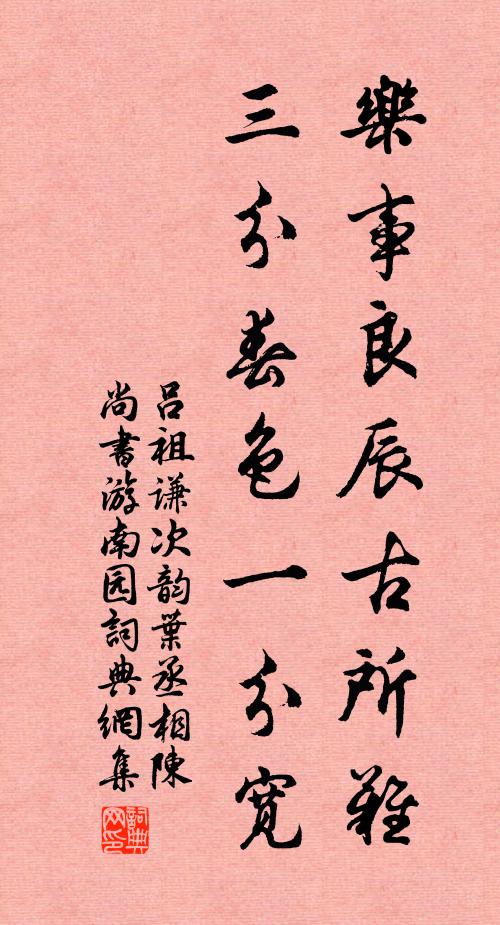 樂事良辰古所難
三分春色一分寬
呂祖谦次韵葉丞相陳
尚書游南园詞典網集
詞典网印